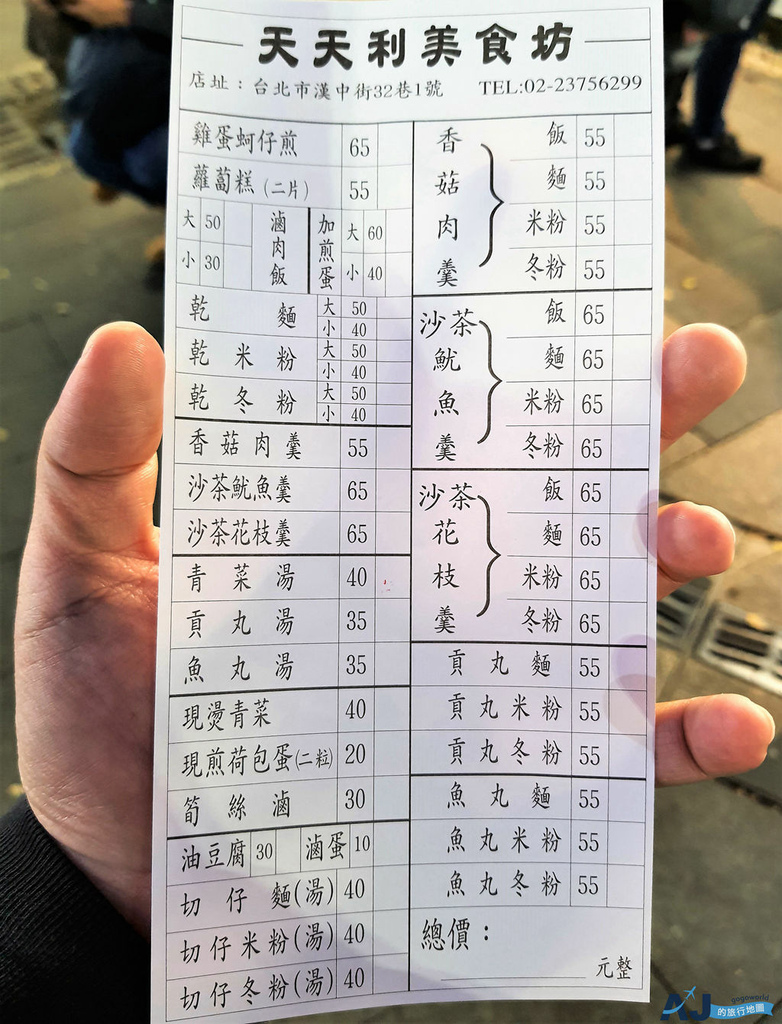 天天利美食坊
店址：台北市漢中街32巷1號 TEL:02-23756299
雞蛋蚵仔煎 65
蘿蔔糕(二片) 55
滷肉飯 大 50 小 30
加煎蛋 大 60 小 40
乾麵 大 50 小 40
乾米粉 大 50 小 40
乾冬粉 大 50 小 40
香菇肉羹 55
沙茶魷魚羹 65
沙茶花枝羹 65
青菜湯 40
貢丸湯 35
魚丸湯 35
現燙青菜 40
現煎荷包蛋(二粒) 20
筍絲滷 30
油豆腐 30 滷蛋 10
切仔麵(湯) 40
切仔米粉(湯) 40
切仔冬粉(湯) 40
香菇肉羹
飯 55
麵 55
米粉 55
冬粉 55
沙茶魷魚羹
飯 65
麵 65
米粉 65
冬粉 65
沙茶花枝羹
飯 65
麵 65
米粉 65
冬粉 65
貢丸麵 55
貢丸米粉 55
貢丸冬粉 55
魚丸麵 55
魚丸米粉 55
魚丸冬粉 55
總價：
元整
AJ gogoworld
的旅行地圖